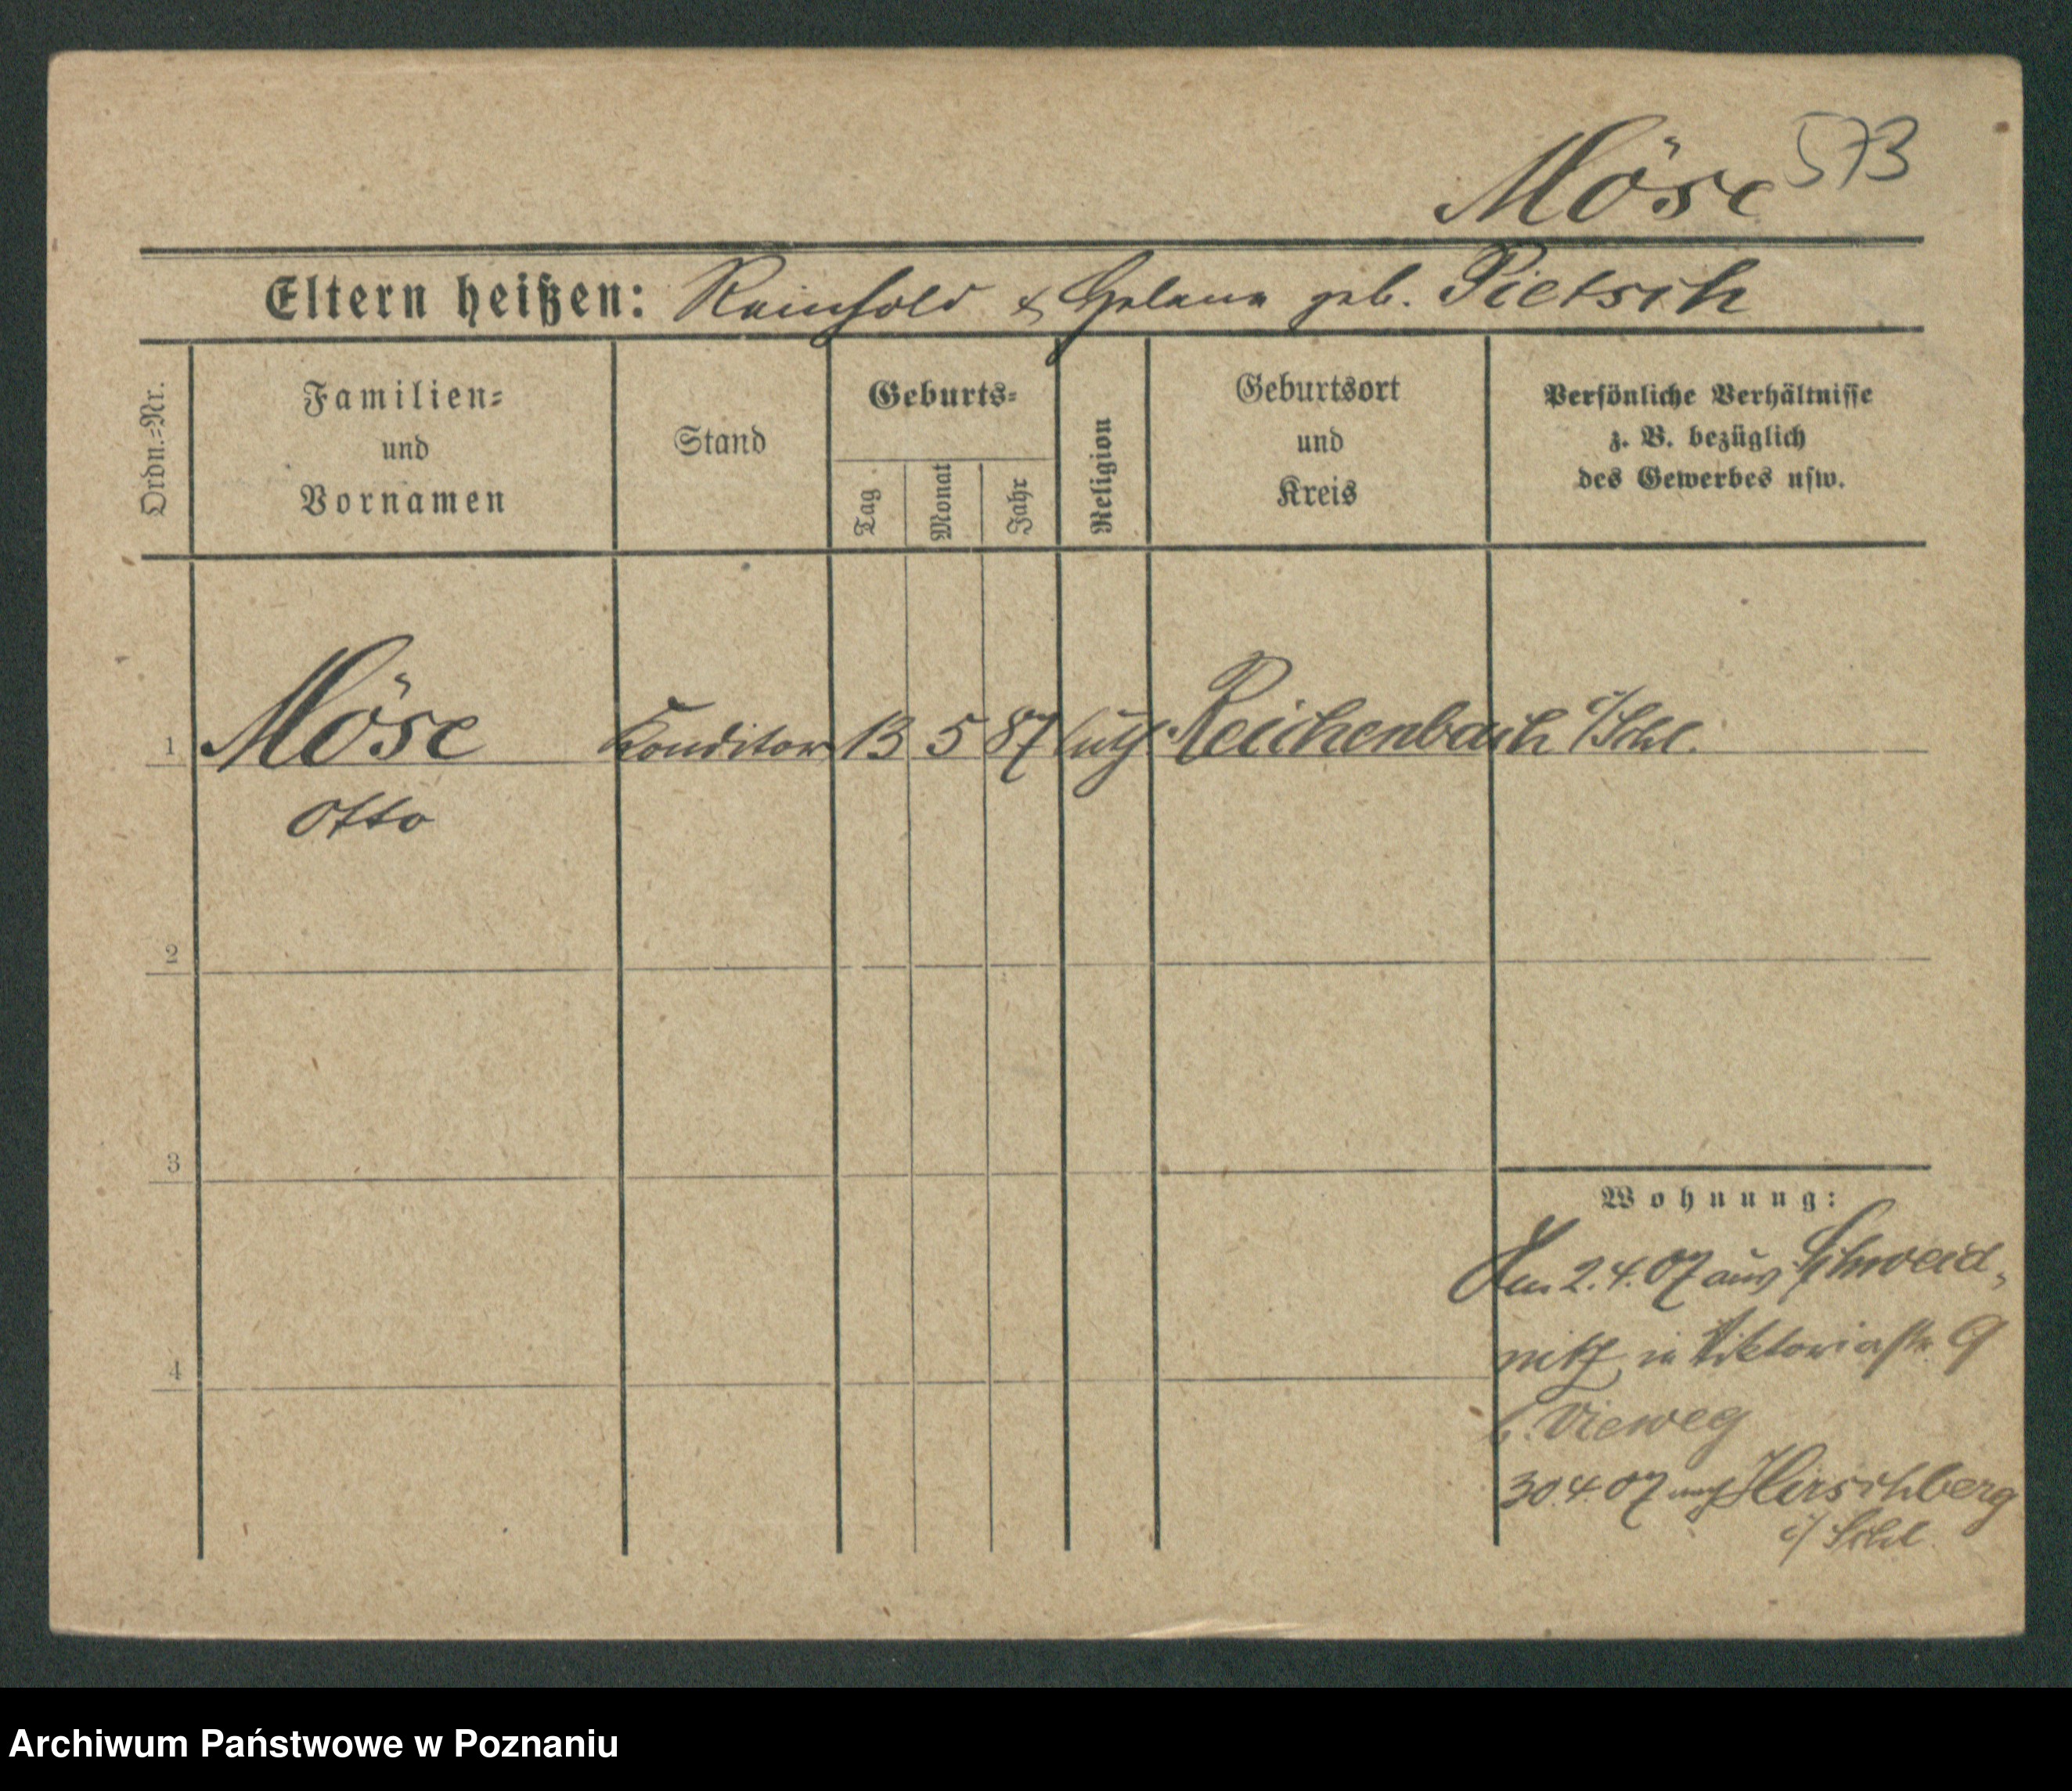 Möse 573
Eltern heißen: Reinhold & Helene geb. Pietsch
Ordn.=Nr.
Familien=
und
Vornamen
Stand
Geburts=
Tag
Monat
Jahr
Religion
Geburtsort
und
Kreis
Persönliche Verhältnisse
z. B. bezüglich
des Gewerbes usw.
1 Möse Konditor 13 5 87 luth Reichenbach i/Schl.
Otto
2
3
Wohnung:
Am 2.4.07 aus Schweid-
nitz in Viktoriastr 9
4
b. Vieweg
30.4.07 nach Hirschberg
i/ Schl
Archiwum Państwowe w Poznaniu